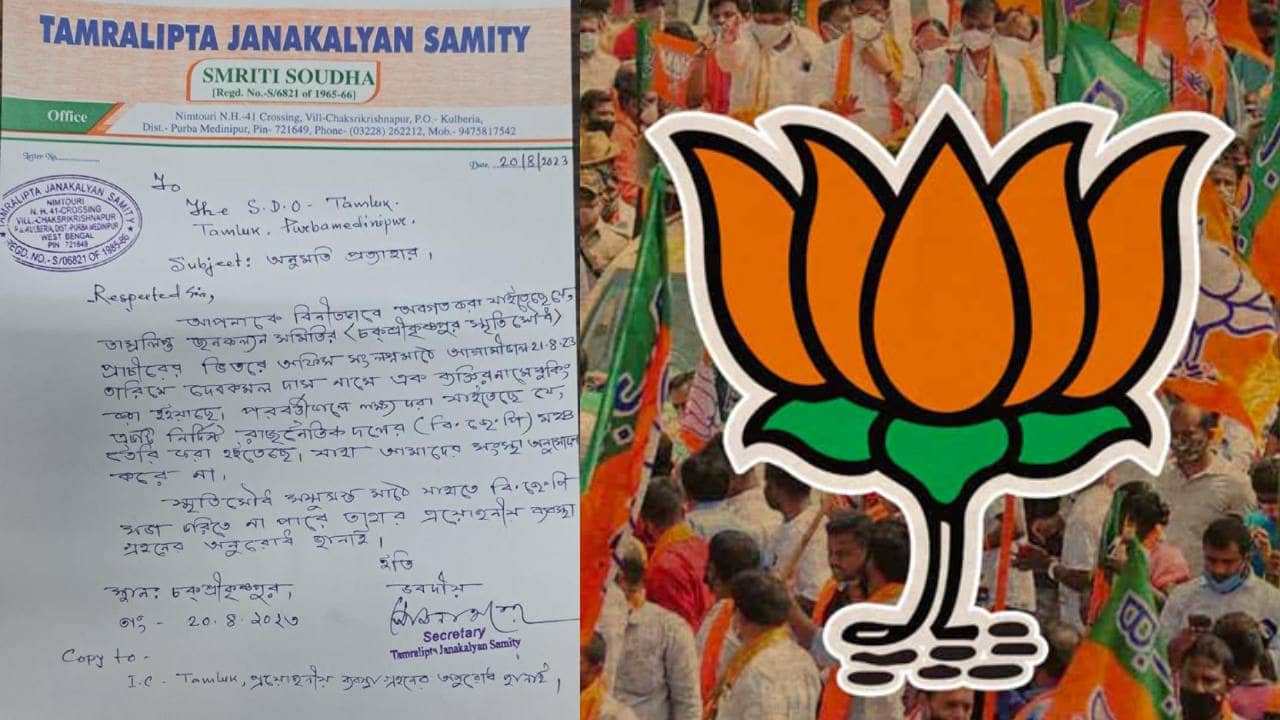 TAMRALIPTA JANAKALYAN SAMITY
SMRITI SOUDHA
[Regd. No.-S/6821 of 1965-66]
Office
Nimtouri N.H.-41 Crossing, Vill-Chaksrikrishnapur, P.O.- Kulberia,
Dist.- Purba Medinipur, Pin- 721649, Phone- (03228) 262212, Mob.- 9475817542
Letter No.
Date. 20/8/2023
TAMRALIPTA JANAKALYAN SAMITY
NIMTOURI
N. H. 41-CROSSING
VILL-CHAKSRIKRISHNAPUR
DIST-PURBA MEDINIPUR
WEST BENGAL
PIN 721649
REGD. NO.-S/06821 OF 1965-66
To
The S.D.O- Tamluk.
Tamluk, Purbamedinipur.
Subject: অনুমতি প্রত্যাহার।
Respected Sir,
আপনাকে বিনীতভাবে অবগত করা যাইতেছে যে,
তাম্রলিপ্ত জনকল্যান সমিতির (চকশ্রীকৃষ্ণপুর স্মৃতিসৌধ)
প্রাচীরের ভিতরে অফিস সংলগ্ন মাঠে আগামীকাল 21.8.23
তারিখে দেবকমল দাস নামে এক ব্যক্তির নামে বুকিং
করা হইয়াছে। পরবর্তীকালে লক্ষ্য করা যাইতেছে যে,
একটি নির্দিষ্ট রাজনৈতিক দলের (বি. জে. পি) মঞ্চ
তৈরি করা হইতেছে। যাহা আমাদের সংস্থা অনুমোদন
করে না।
স্মৃতিসৌধ মাঠে যাহাতে বি. জে. পি
সভা করিতে না পারে তাহার প্রয়োজনীয় ব্যবস্থা
গ্রহনের অনুরোধ জানাই।
ইতি
ভবদীয়
স্থান: চকশ্রীকৃষ্ণপুর,
তাং - 20.8.২০২৩
Secretary
Tamralipta Janakalyan Samity
Copy to -
I.C. Tamluk, প্রয়োজনীয় ব্যবস্থা গ্রহনের অনুরোধ জানাই।